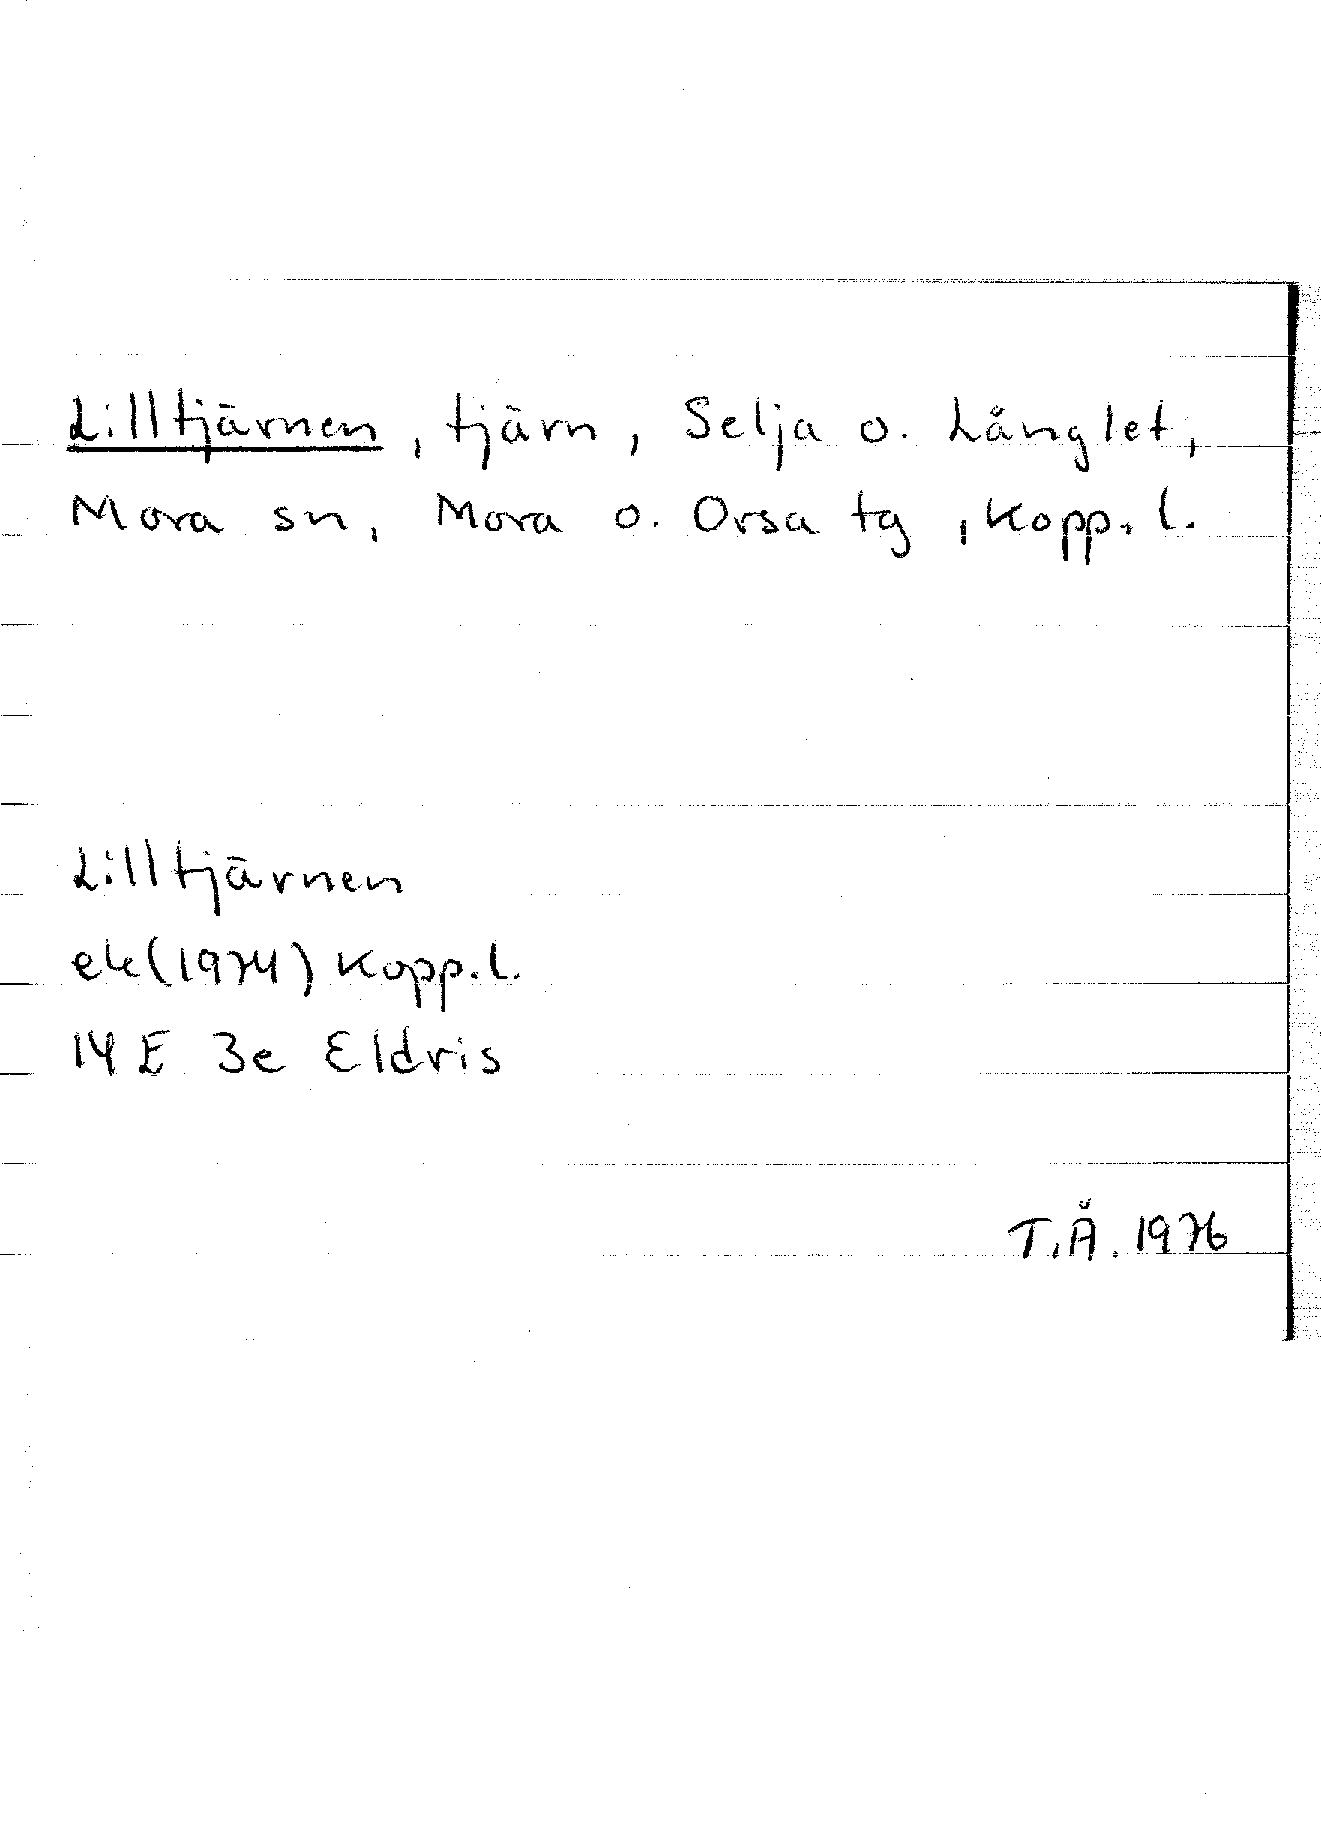 Lilltjärnen, tjärn, Selja o. Långlet,
Mora sn, Mora o. Orsa tg, Kopp. l.
Lilltjärnen
ek (1974) Kopp. l.
14 E 3e Eldris
T.Å. 1976